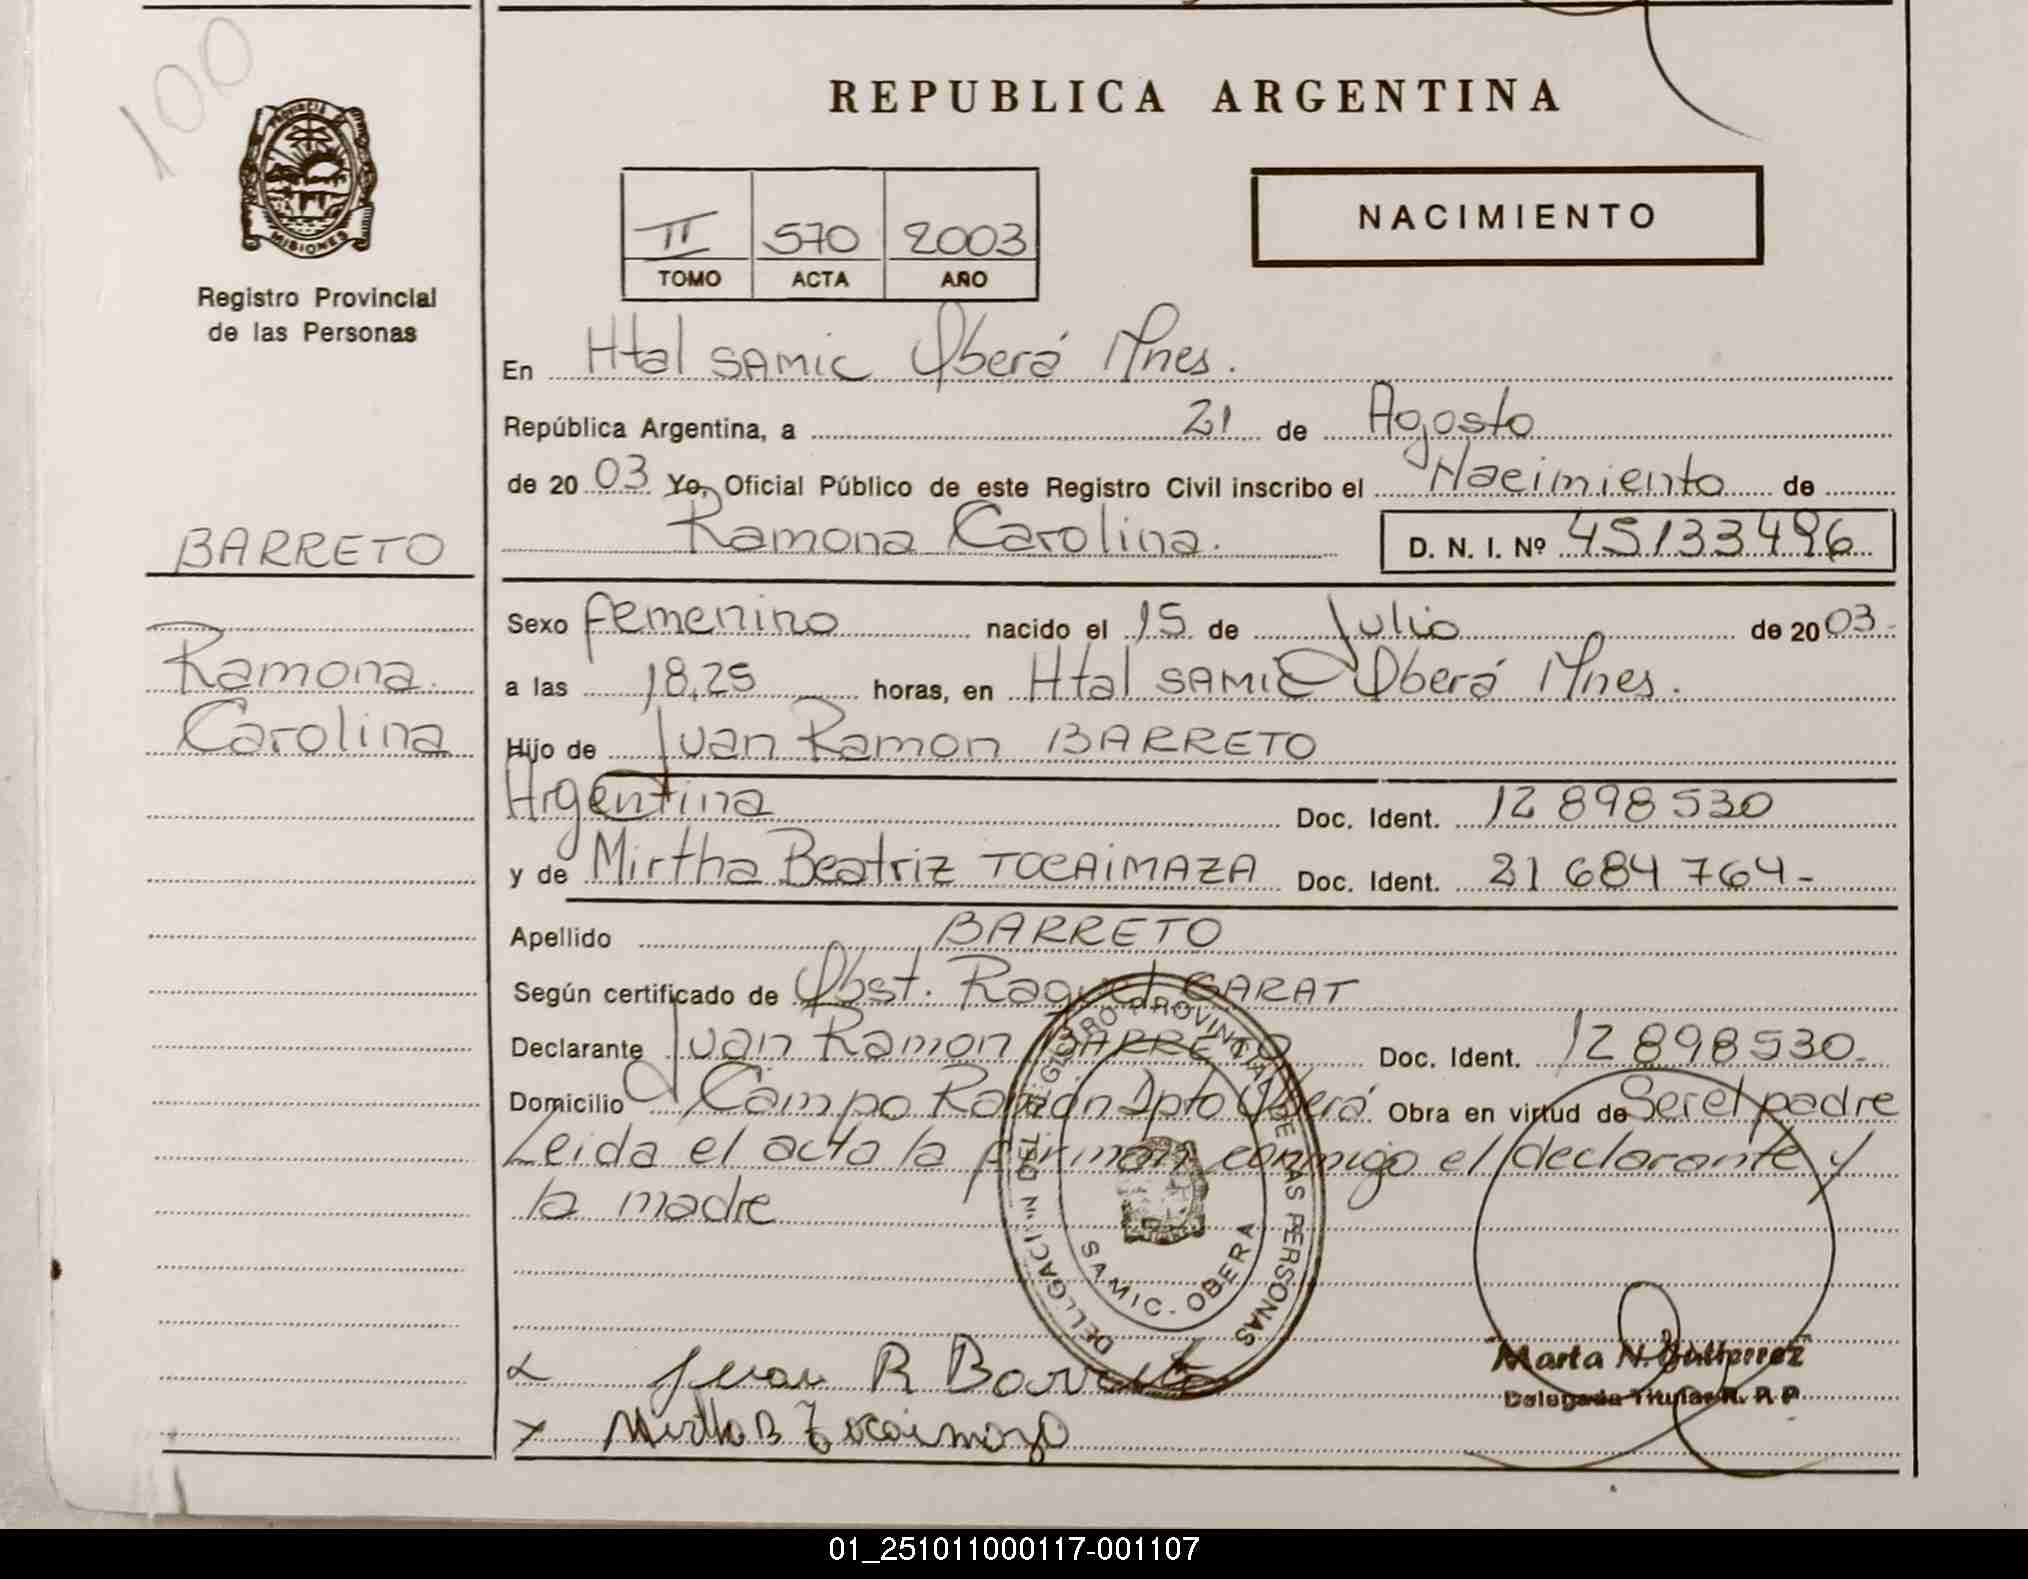 100
PROVINCIA DE
MISIONES
Registro Provincial
de las Personas
BARRETO
Ramona
Carolina
REPUBLICA ARGENTINA
II 570 2003
TOMO ACTA AÑO
NACIMIENTO
En Htal SAMIC Oberá Mnes.
República Argentina, a 21 de Agosto
de 2003 Yo, Oficial Público de este Registro Civil inscribo el Nacimiento de
Ramona Carolina. D. N. I. Nº 45133496
Sexo femenino nacido el 15 de Julio de 2003-
a las 18,25 horas, en Htal SAMIC Oberá Mnes.
Hijo de Juan Ramon BARRETO
Argentina Doc. Ident. 12 898 530
y de Mirtha Beatriz TOCAIMAZA Doc. Ident. 21 684 764-
Apellido BARRETO
Según certificado de Obst. Raquel GARAT
Declarante Juan Ramon BARRETO Doc. Ident. 12 898 530-
Domicilio Campo Ramón Dpto Oberá Obra en virtud de Ser el padre
Leida el acta la firman conmigo el declarante y
la madre
REGISTRO PROVINCIAL DE LAS PERSONAS
S.A.M.I.C. - OBERA
Juan R Barreto
x Mirtha B Tocaimaza
Marta N. Gutierrez
Delegada Titular R. P. P
01_251011000117-001107